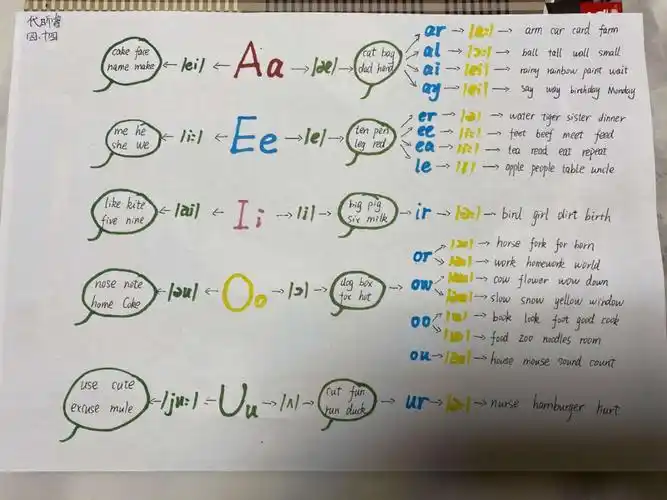 代昕睿
四.十四
cake face name make ← /ei/ ← Aa → /æ/ → cat bag dad hand
ar → /ɑ:/ → arm car card farm
al → /ɔ:/ → ball tall wall small
ai → /ei/ → rainy rainbow paint wait
ay → /ei/ → say way birthday Monday
me he she we ← /i:/ ← Ee → /e/ → ten pen leg red
er → /ə/ → water tiger sister dinner
ee → /i:/ → feet beef meet feed
ea → /i:/ → tea read eat repeat
le → /l/ → apple people table uncle
like kite five nine ← /ai/ ← Ii → /i/ → big pig six milk → ir → /ə:/ → bird girl dirt birth
nose note home Coke ← /əu/ ← Oo → /ɔ/ → dog box fox hot
or → /ɔ:/ → horse fork for born
→ /ə:/ → work homework world
ow → /au/ → cow flower wow down
→ /əu/ → slow snow yellow window
oo → /u/ → book look foot good cook
→ /u:/ → food zoo noodles room
ou → /au/ → house mouse sound count
use cute excuse mule ← /ju:/ ← Uu → /ʌ/ → cut fun run duck → ur → /ə:/ → nurse hamburger hurt